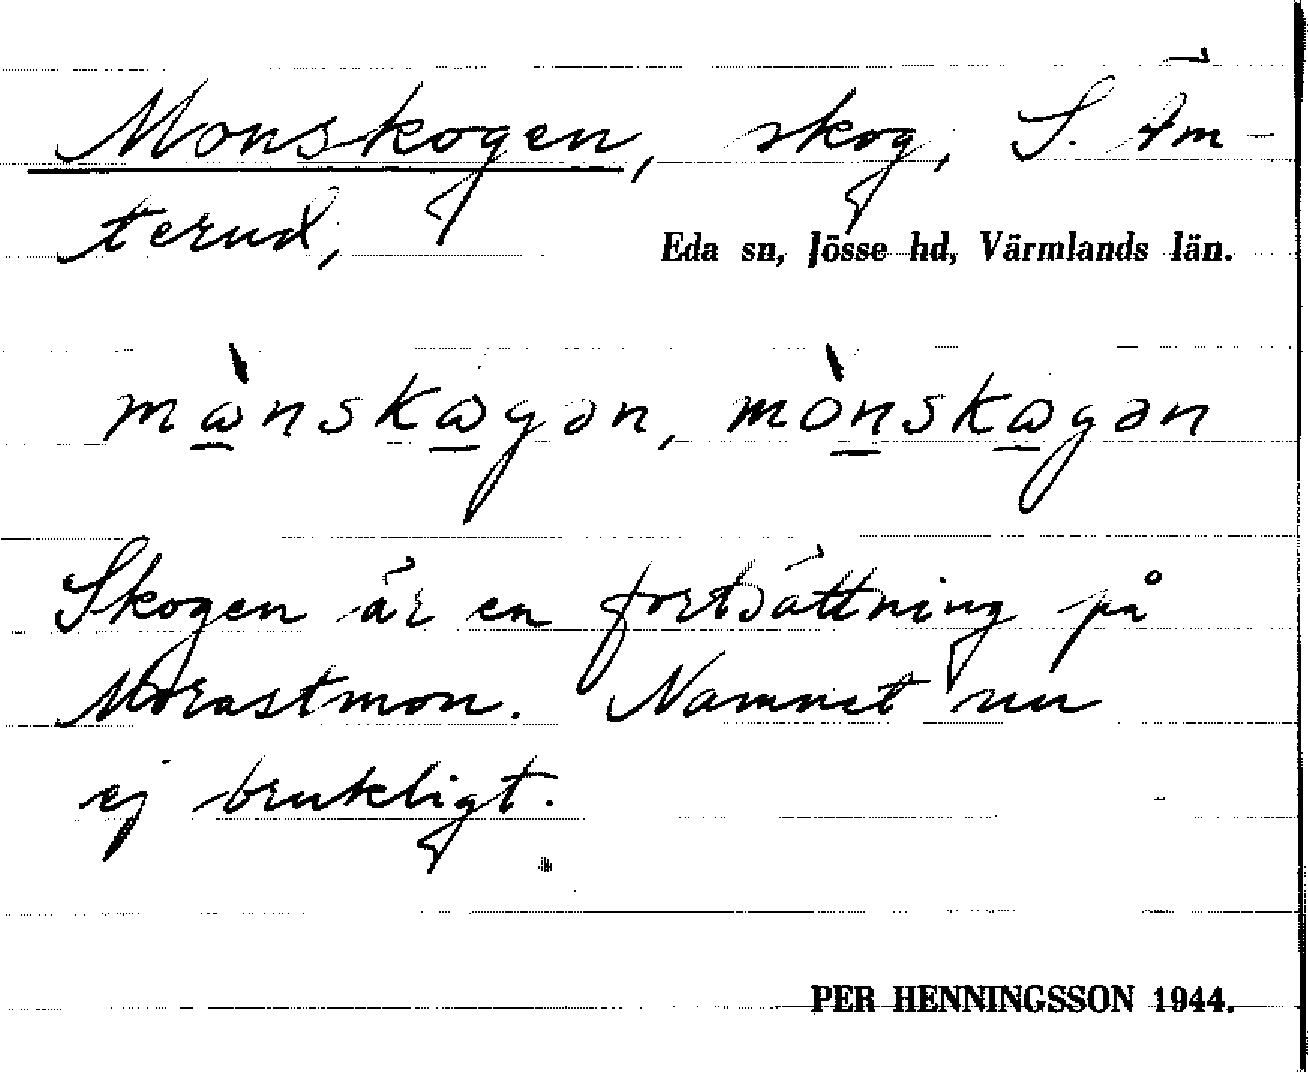 Monskogen, skog, S. Äm-
terud,
Eda sn, Jösse hd, Värmlands län.
mɷ̀nskɷgən, mònskɷgən
Skogen är en fortsättning på
Morastmon. Namnet nu
ej brukligt.
PER HENNINGSSON 1944.